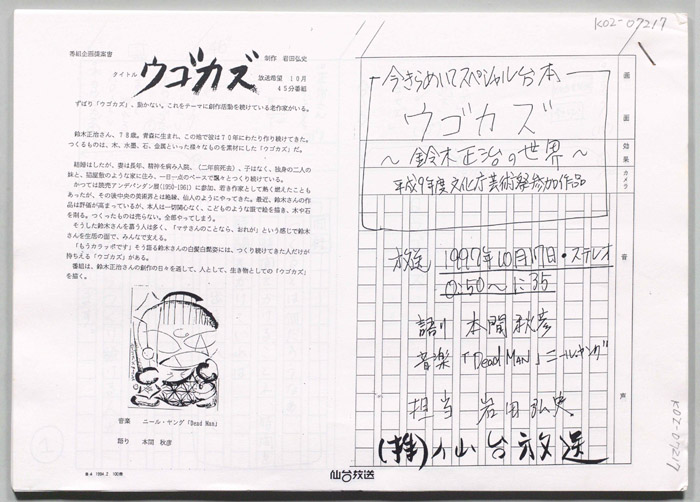 K02-07217
番組企画提案書
制作 岩田弘史
タイトル ウゴカズ
放送希望 10月
45分番組
ずばり「ウゴカズ」、動かない。これをテーマに創作活動を続けている老作家がいる。
鈴木正治さん、78歳。青森に生まれ、この地で彼は70年にわたり作り続けてきた。
つくるものは、木、水墨、石、金属といった様々なものを素材にした「ウゴカズ」だ。
結婚はしたが、妻は長年、精神を病み入院、（二年前死去）、子はなく、独身の二人の
妹と、幽屋敷のような家に住み、一日一点のペースで飄々とつくり続けている。
かつては読売アンデパンダン展(1950-1961)に参加、若き作家として熱く燃えたことも
あったが、その後中央の美術界とは絶縁。仙人のようにやってきた。最近、鈴木さんの作
品は評価が高まっているが、本人は一切関心なく、こどものような眼で絵を描き、木や石
を削る。つくったものは売らない。全部やってしまう。
そうした鈴木さんを慕う人は多く、「マサさんのことなら、おれが」という感じで鈴木
さんを生活の面で、みんなで支える。
「もうカラッポです」そう語る鈴木さんの白髪白髭姿には、つくり続けてきた人だけが
持ちえる「ウゴカズ」がある。
番組は、鈴木正治さんの創作の日々を通して、人として、生き物としての「ウゴカズ」
を描く。
音楽 ニール・ヤング「Dead Man」
語り 本間 秋彦
画面
効果
カメラ
音
声
今きらめいてスペシャル台本
ウゴカズ
～鈴木正治の世界～
平成9年度文化庁芸術祭参加作品
放送 1997年10月17日・ステレオ
0:50～1:35
語り 本間秋彦
音楽 「Dead MAN」ニールヤング
担当 岩田弘史
(株)仙台放送
仙台放送
K02-07217